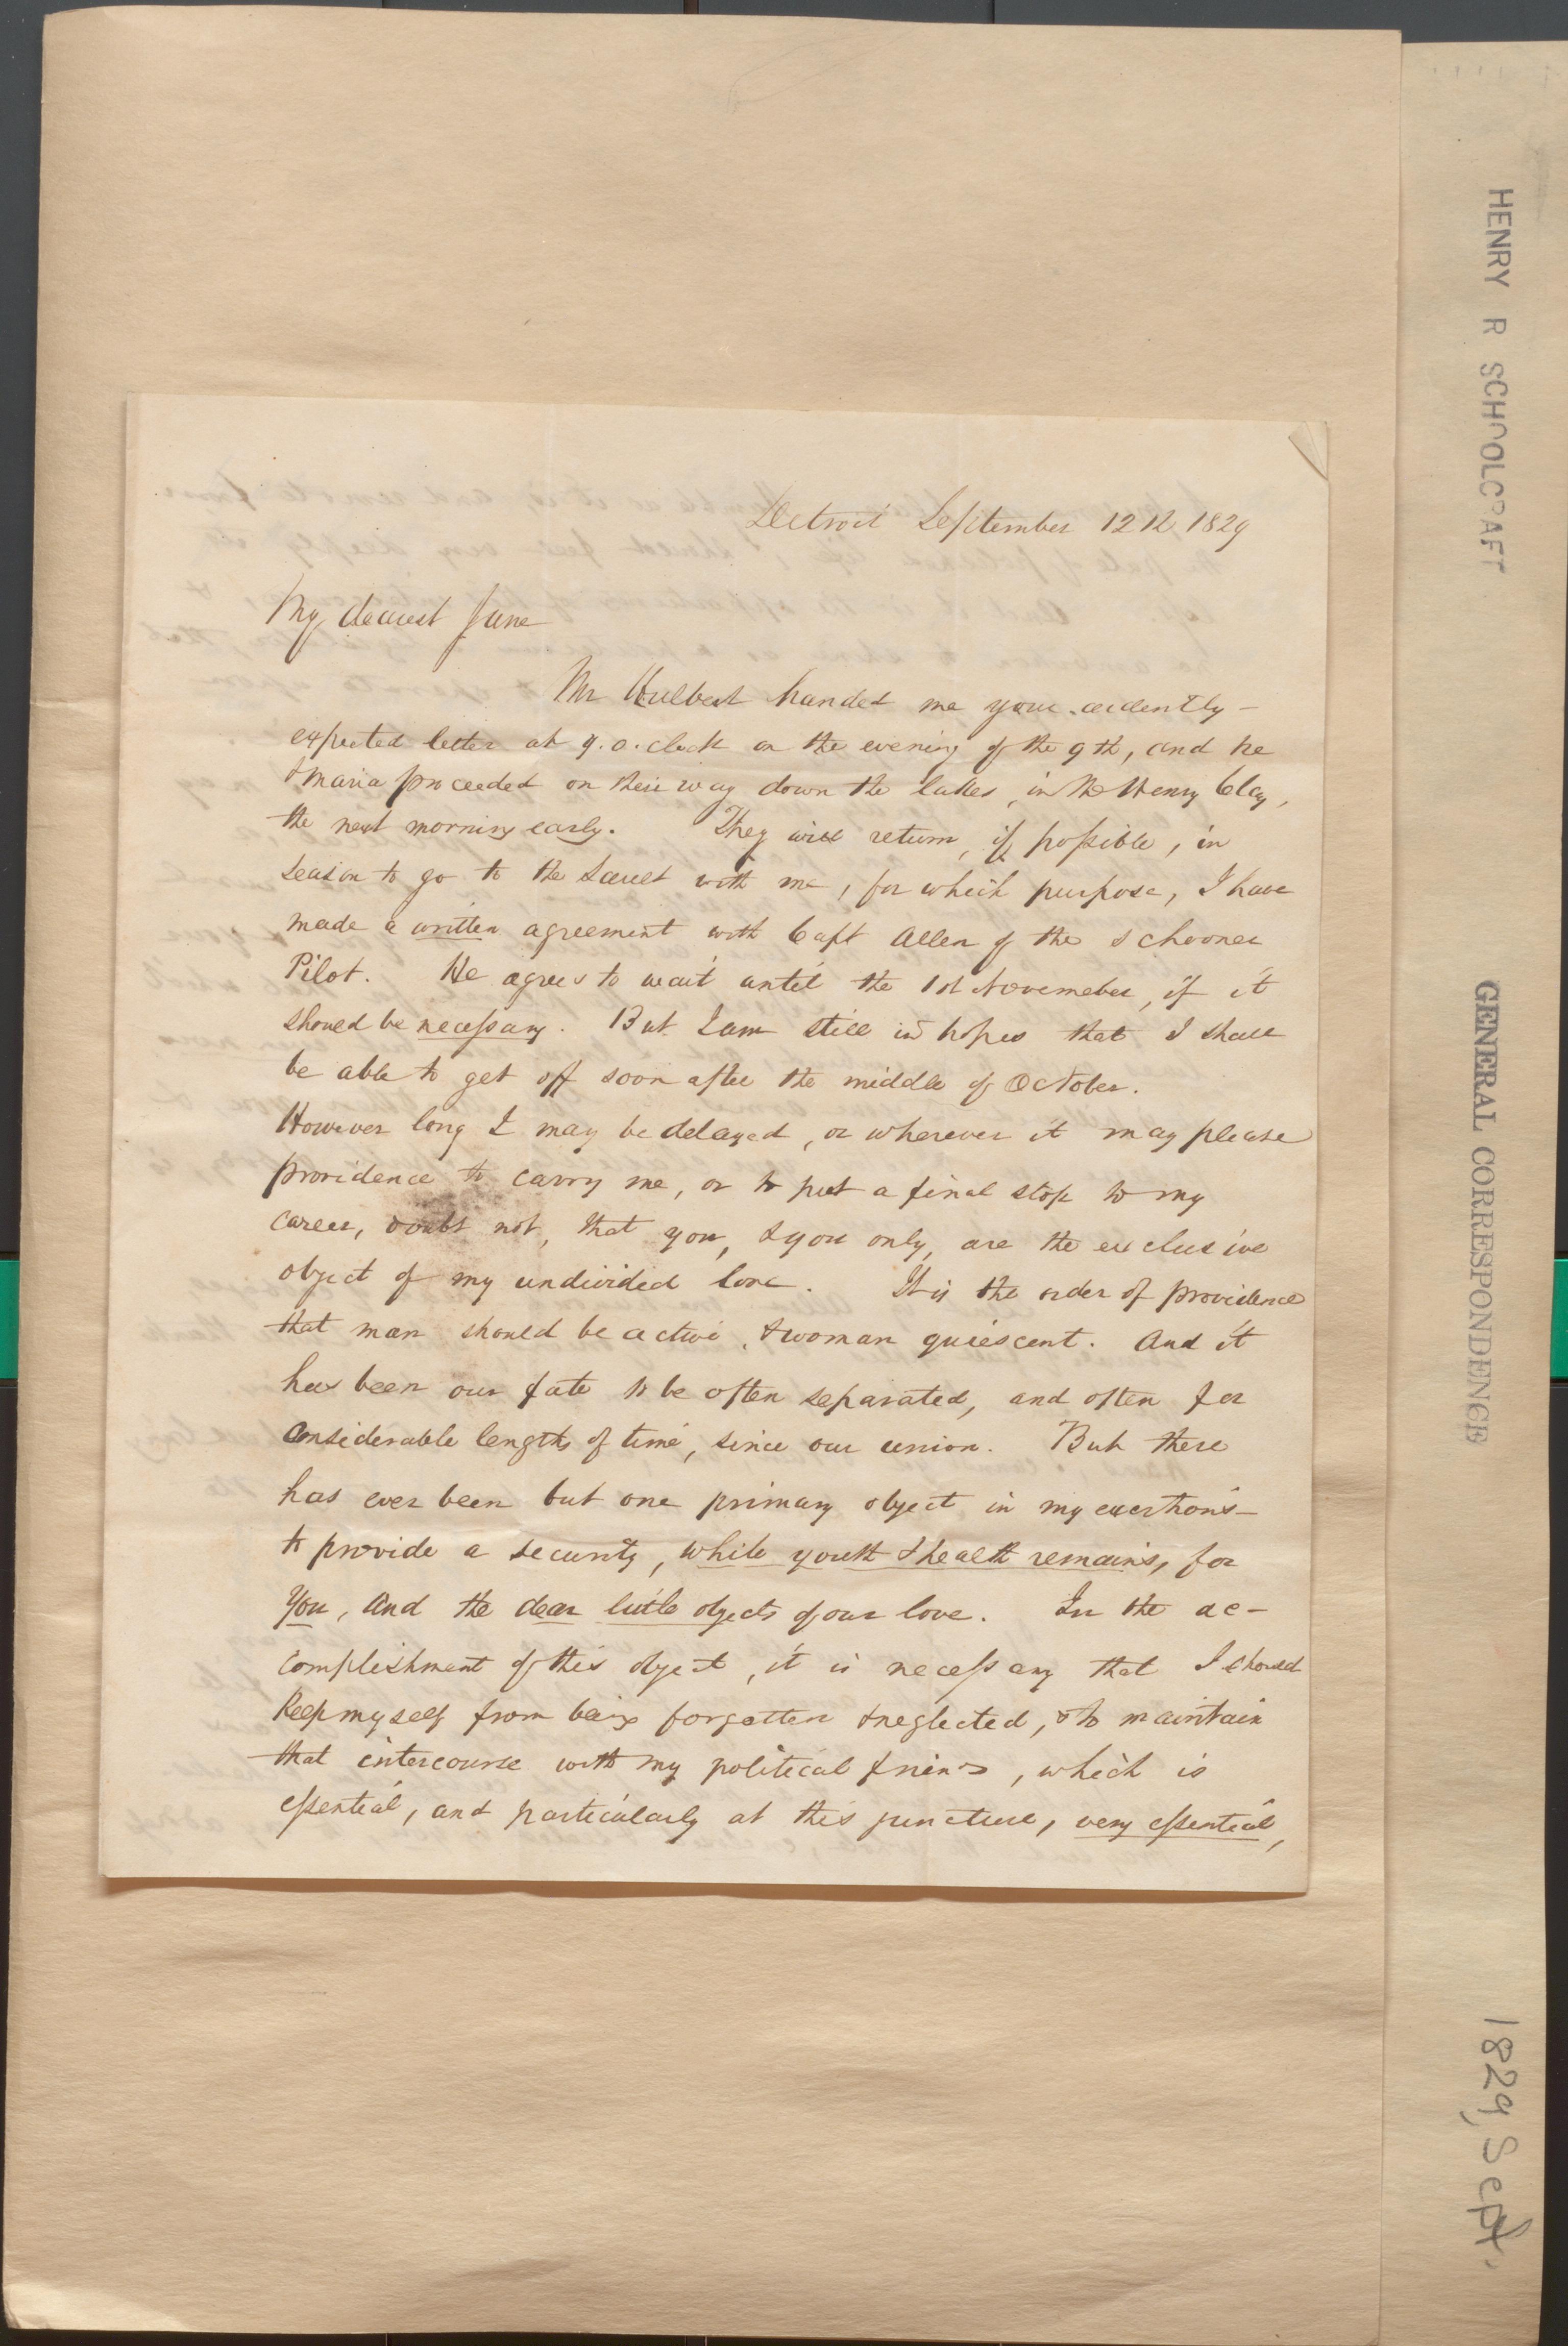 Detroit September 12th 1829
My dearest Jane
Mr Hulbert handed me your ardently-
expected letter at 9.o.clock on the evening of the 9th, and he
& Maria proceeded on their way down the lakes, in the Henry Clay,
the next morning early. They will return, if possible, in
season to go to the Sault with me, for which purpose, I have
made a written agreement with Capt Allen of the schooner
Pilot. He agrees to wait until the 1st Novemeber, if it
should be necessary. But I am still in hopes that I shall
be able to get off soon after the middle of October.
However long I may be delayed, or wherever it may please
providence to carry me, or to put a final stop to my
career, doubt not, that you, & you only, are the exclusive
object of my undivided love. It is the order of providence
that man should be active, & woman quiescent. And it
has been our fate to be often separated, and often for
considerable lengths of time, since our union. But there
has ever been but one primary object in my exertions-
to provide a security, while youth & health remains, for
You, and the dear little objects of our love. In the ac-
complishment of this object, it is necessary that I should
keep myself from being forgotten & neglected, & to maintain
that intercourse with my political friends, which is
essential, and particularly at this juncture, very essential,
HENRY R SCHOOLCRAFT
GENERAL CORRESPONDENCE
1829, Sept.